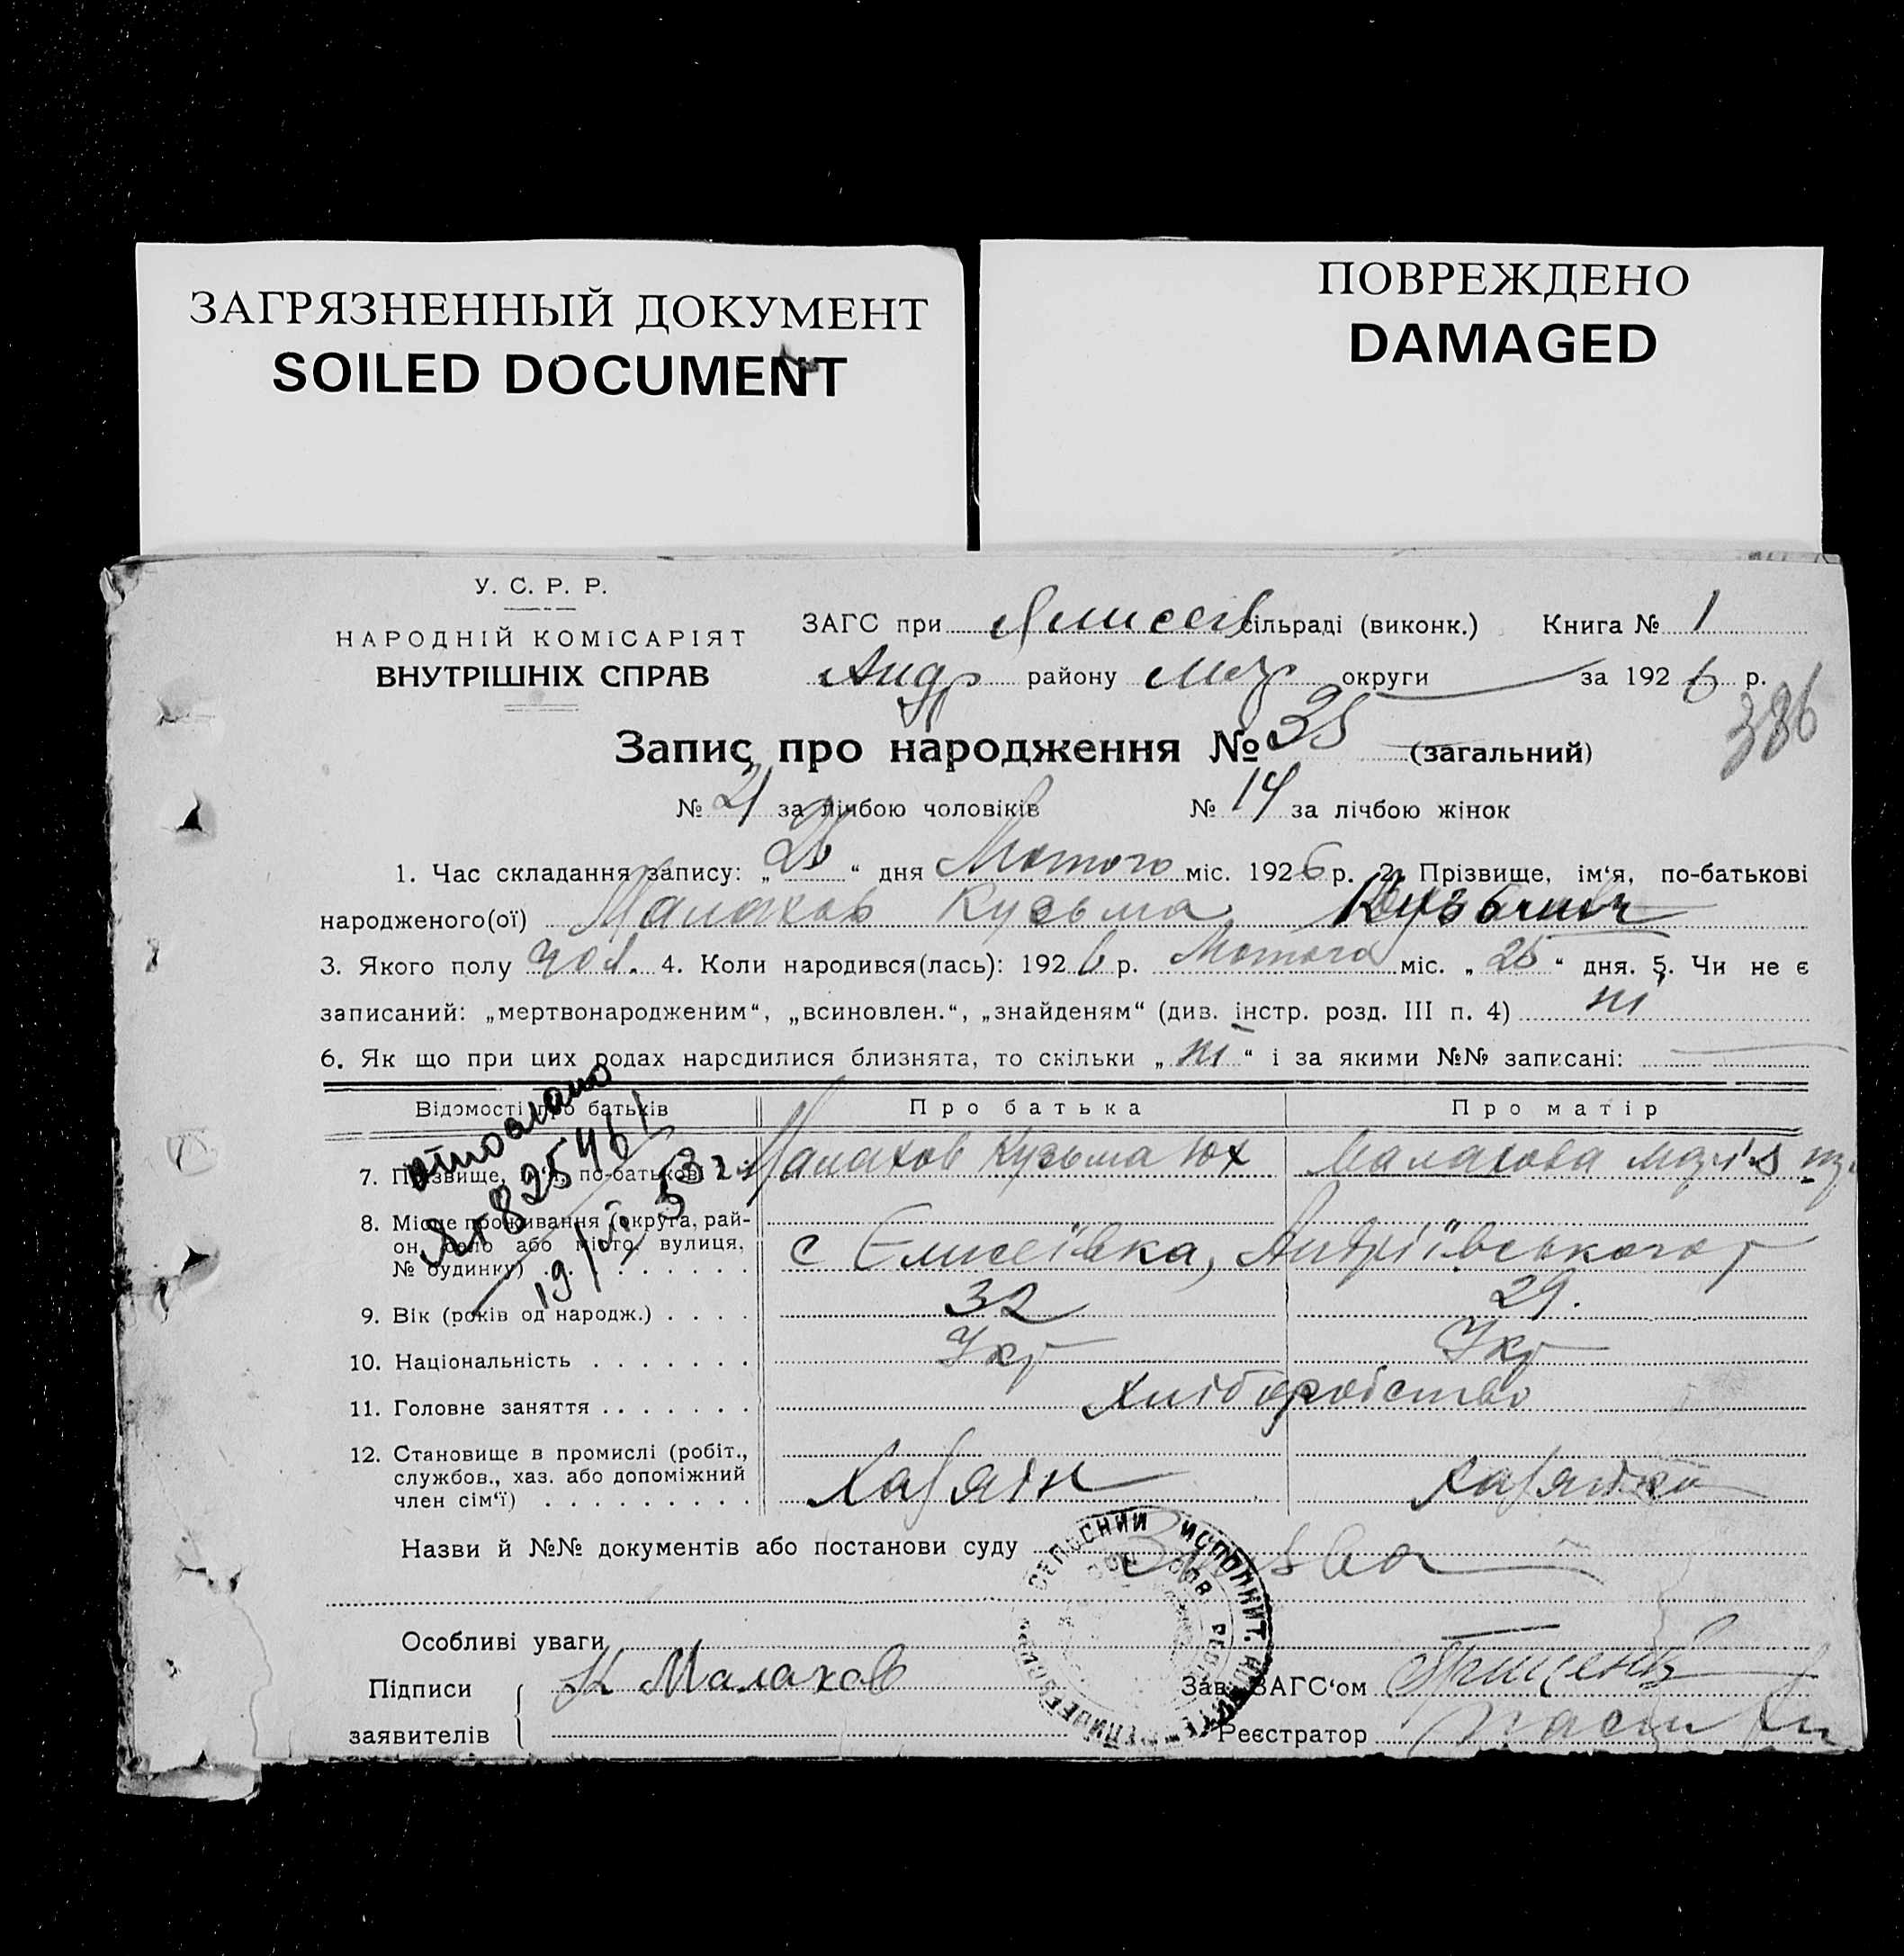 ЗАГРЯЗНЕННЫЙ ДОКУМЕНТ
SOILED DOCUMENT
ПОВРЕЖДЕНО
DAMAGED
У. С. Р. Р.
НАРОДНІЙ КОМІСАРІЯТ
ВНУТРІШНІХ СПРАВ
ЗАГС при сільраді (виконк.) Книга № 1
Андр району округи за 1926 р.
386
Запис про народження № 35 (загальний)
№ 21 за лічбою чоловіків № 14 за лічбою жінок
1. Час складання запису: „26“ дня Лютого міс. 1926 р. 2. Прізвище, ім‘я, по-батькові
народженого(ої) Малахов Кузьма
3. Якого полу чол. 4. Коли народився(лась): 1926 р. Лютого міс. „25“ дня. 5. Чи не є
записаний: „мертвонародженим“, „всиновлен.“, „знайденям“ (див. інстр. розд. III п. 4) ні
6. Як що при цих родах народилися близнята, то скільки „ні“ і за якими №№ записані:
Відомості про батьків Про батька Про матір
7. Прізвище, ім‘я, по-батькові Малахов Кузьма Юх Малахова Марія
8. Місце проживання (округа, рай-
он, село або місто, вулиця,
№ будинку) с Єлисеївка, Андріївського р
9. Вік (років од народж.) 32 29.
10. Національність Укр Укр
11. Головне заняття Хліборобство
12. Становище в промислі (робіт.,
службов., хаз. або допоміжний
член сім‘ї) Хазяїн Хазяйка
Назви й №№ документів або постанови суду Заява
Особливі уваги
Підписи К Малахов Зав. ЗАГС‘ом
заявителів Реєстратор
СЕЛЬСКИЙ ИСПОЛНИТ.